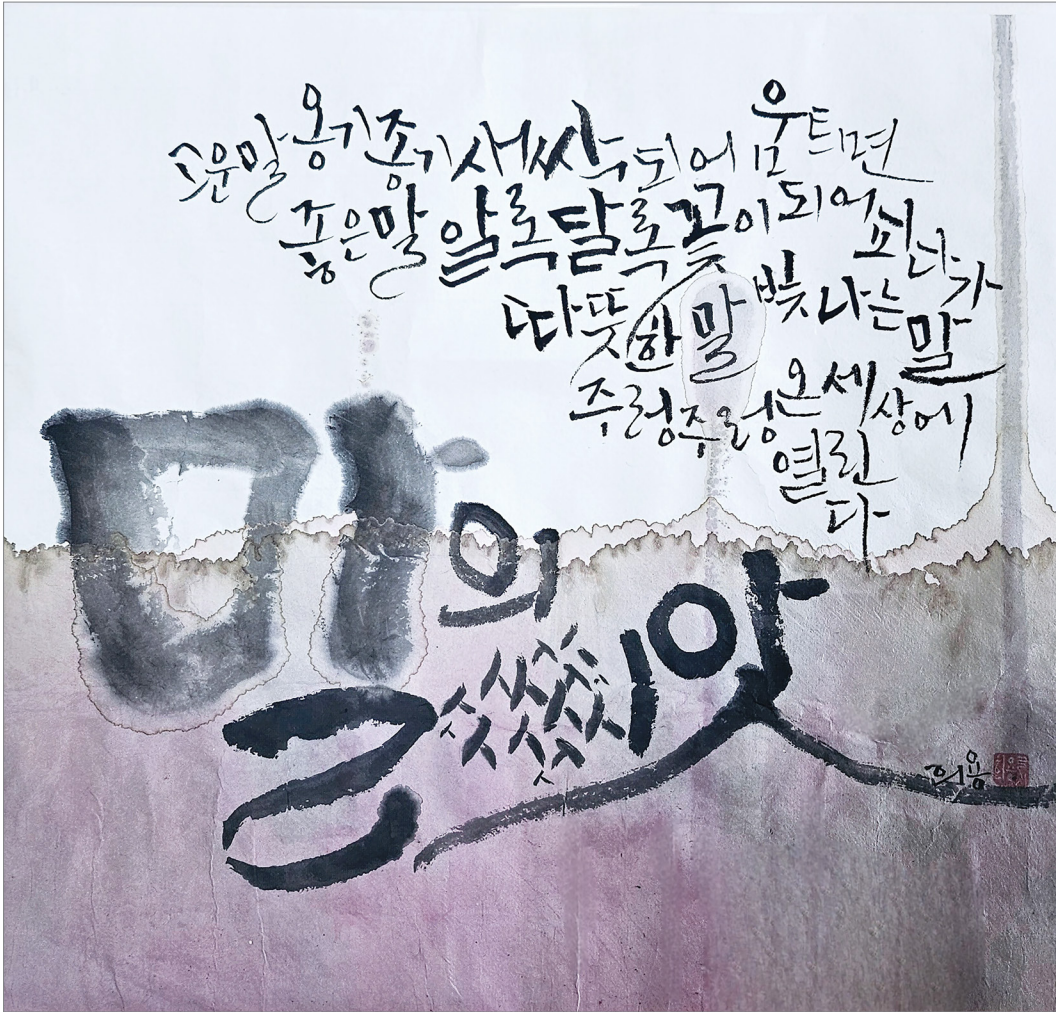 고운말 옹기종기 새싹 되어 움트면
좋은말 알록달록 꽃이 되어
따뜻한 말 빛나는 말
주렁주렁 온세상에
열린
다
말의
씨앗
희용